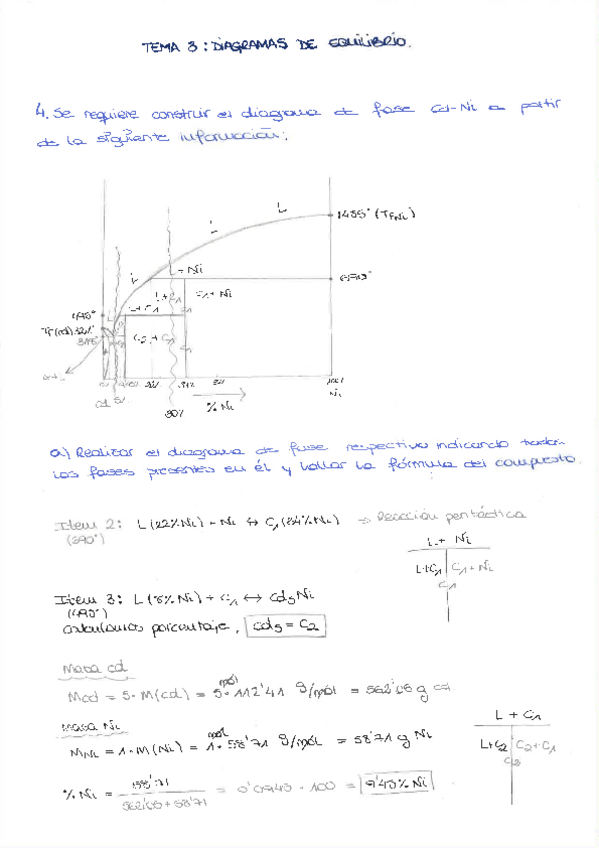 TEMA 3: DIAGRAMAS DE EQUILIBRIO.
4. Se requiere construir el diagrama de fase Cd-Ni a partir
de la siguiente información:
L
L
1455° (TFNi)
L
L + Ni
L+C1
C1+Ni
L+C1
490°
Tf(Cd) 321°
C2+C1
C1
Cd
5%
90%
% Ni
Ni
a) Realizar el diagrama de fase respectivo indicando todas
las fases presentes en él y hallar la fórmula del compuesto.
Item 2: L(22%Ni) + Ni ↔ C1
⇒ Reacción peritéctica
L + Ni
L+C1 C1+Ni
C1
Item 3: L + C1 ↔ Cd5Ni
(490°)
Calculamos porcentaje,
= C2
Masa Cd
mol
MCd = 5 · M(Cd) = 5 · 112'41 g/mol = 562'05 g Cd
Masa Ni
mol
MNi = 1 · M(Ni) = 1 · 58'71 g/mol = 58'71 g Ni
L + C1
L+C2 C2+C1
C2
% Ni = 58'71 / 562'05 + 58'71 = 0'0943 · 100 = 9'43% Ni